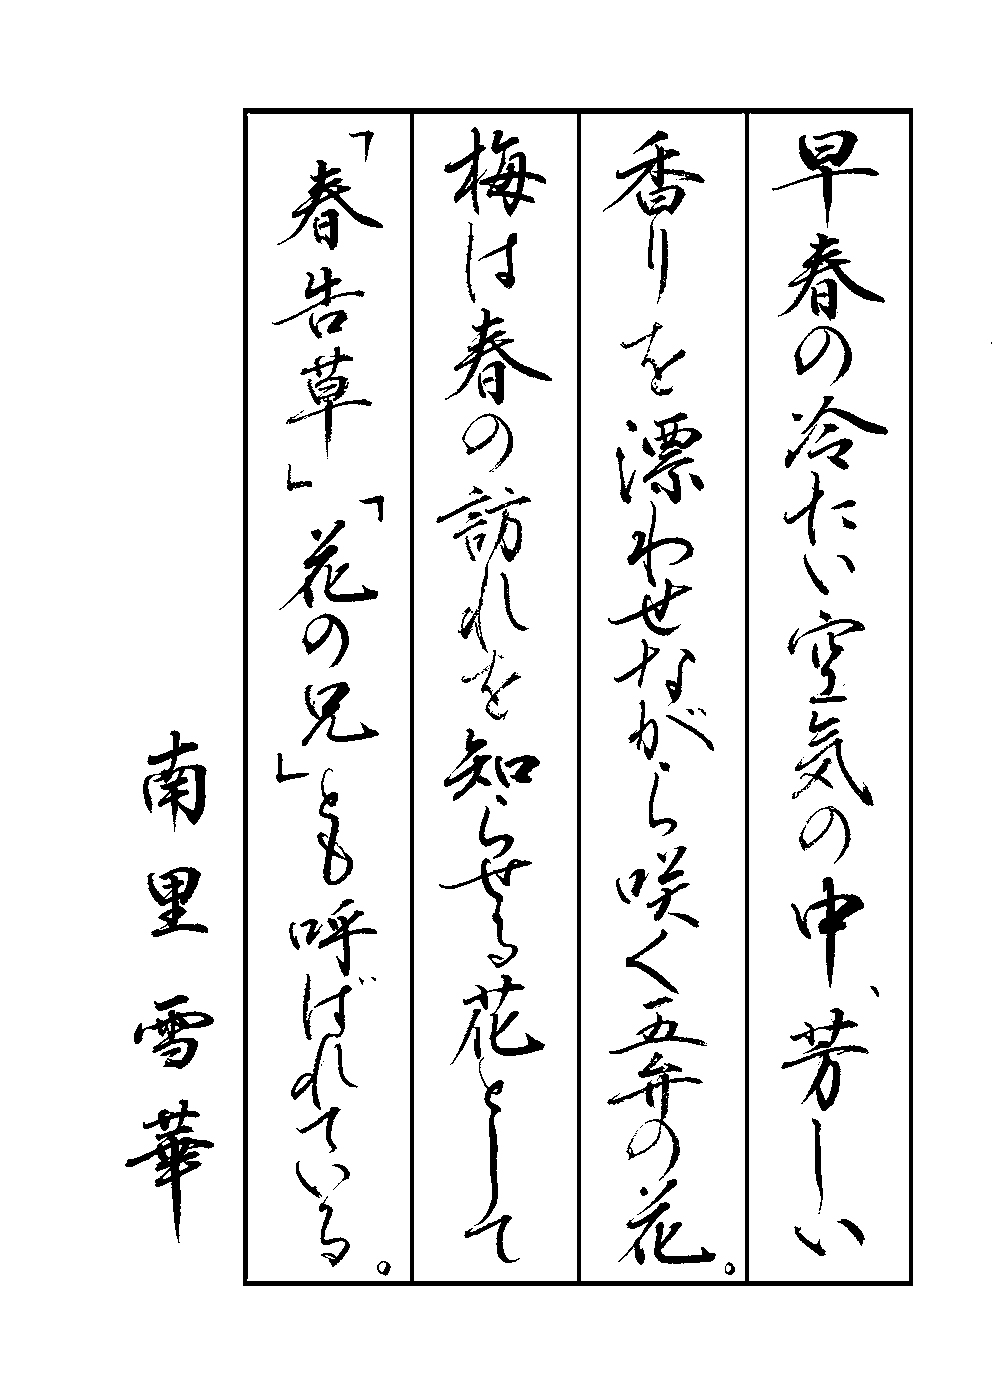 早春の冷たい空気の中、芳しい
香りを漂わせながら咲く五弁の花。
梅は春の訪れを知らせる花として
「春告草」「花の兄」とも呼ばれている。
南里雪華